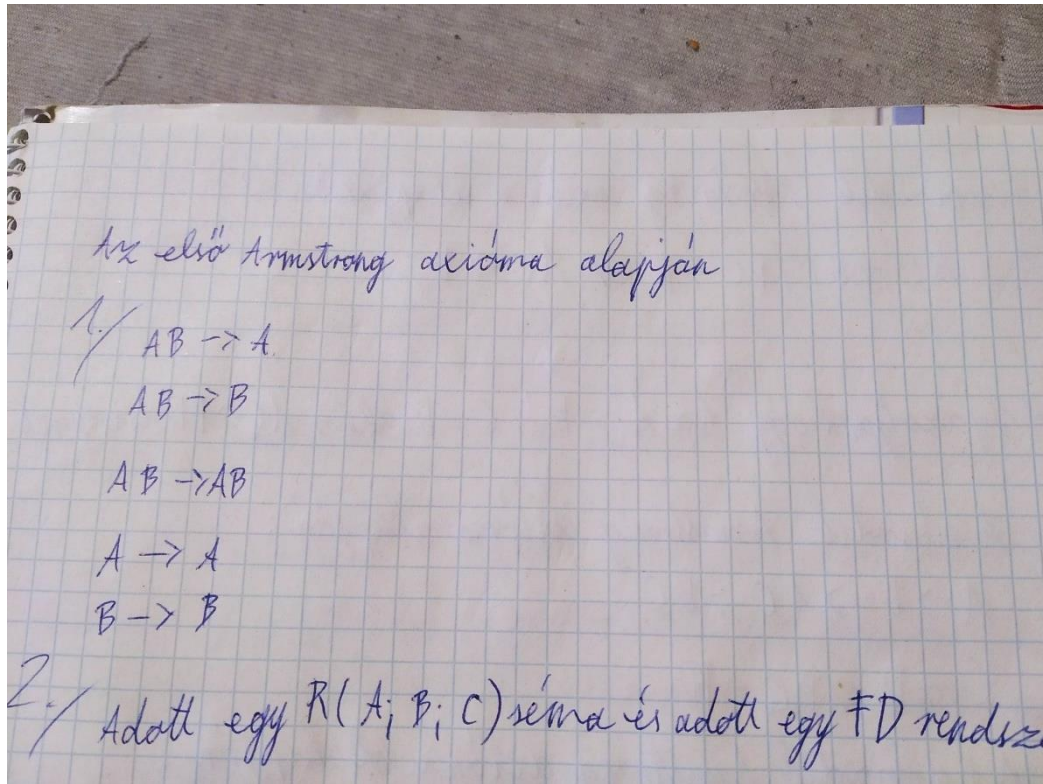 Az első Armstrong axióma alapján
1./ AB -> A
AB -> B
AB -> AB
A -> A
B -> B
2./ Adott egy R(A; B; C) séma és adott egy FD rendsze